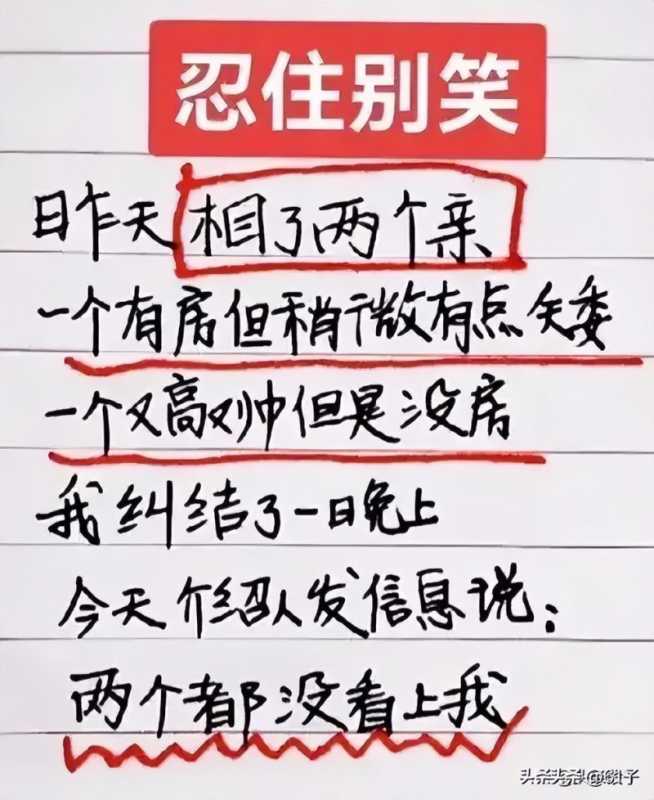 忍住别笑
昨天相了两个亲
一个有房但稍微有点矮
一个又高又帅但是没房
我纠结了一晚上
今天介绍人发信息说:
两个都没看上我
头条 @子